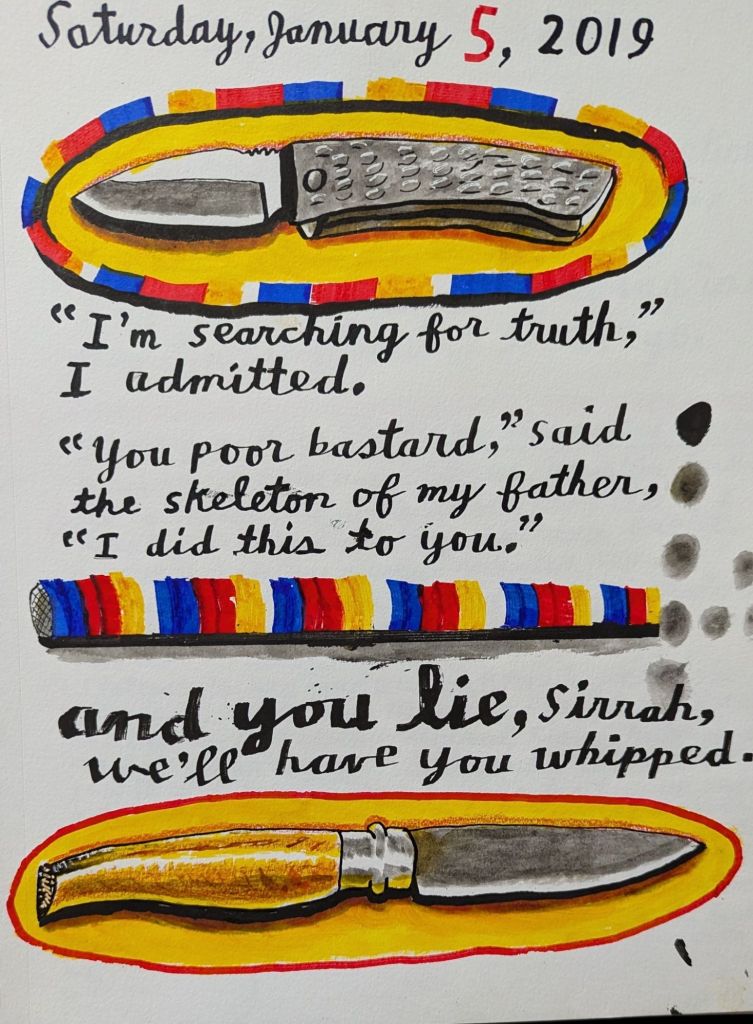 Saturday, January 5, 2019
"I'm searching for truth,"
I admitted.
"You poor bastard," said
the skeleton of my father,
"I did this to you."
and you lie, Sirrah,
we'll have you whipped.